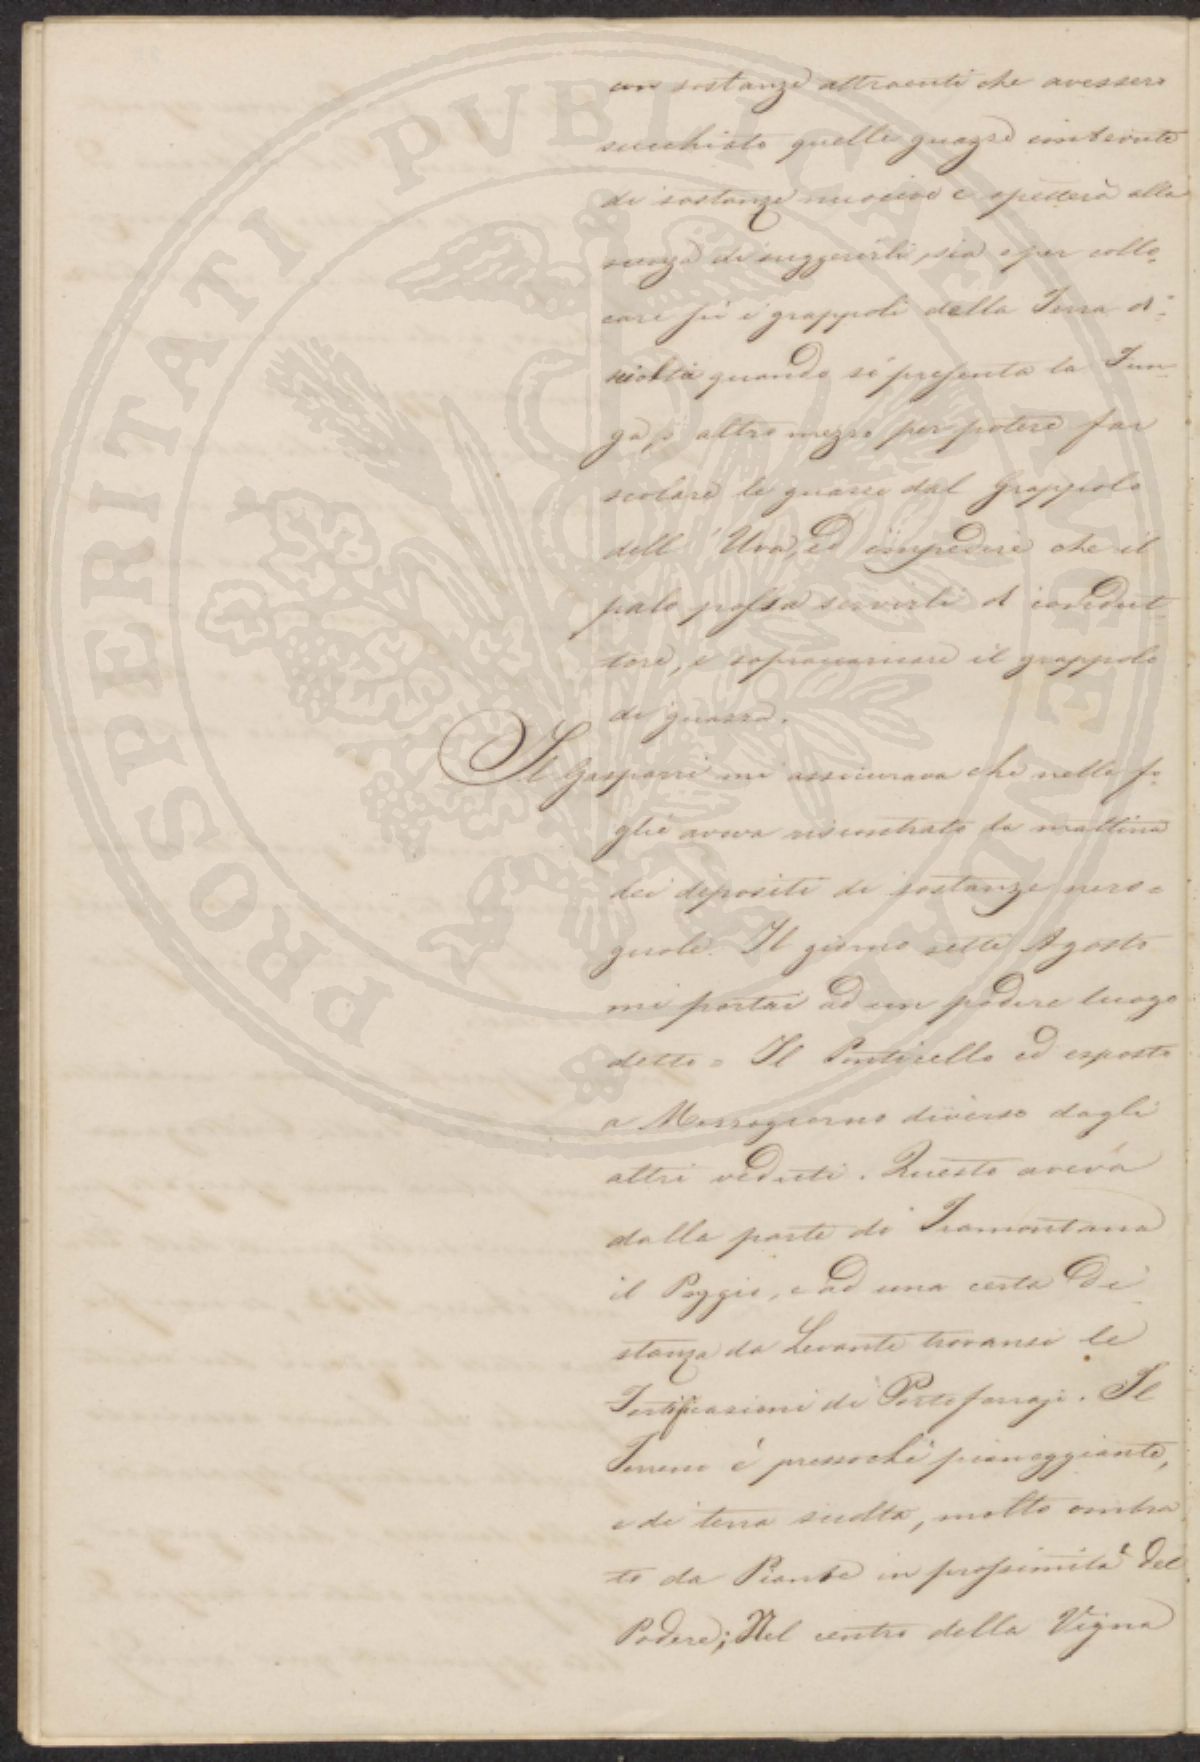 con sostanze attraenti che avessero
succhiato quelle guazze imbevute
di sostanze nuocive e spetterà alla
scienza di suggerirli, sia per collo-
care sù i grappoli della Terra di-
sciolta quando si presenta la Fun-
ga, o altro mezzo per potere far
scolare le guazze dal Grappolo
dell'Uva, ed impedire che il
palo possa servirli di condut-
tore, e sopraccaricare il grappolo
di guazza.
Il Gasparri mi assicurava che nelle fo-
glie aveva riscontrato la mattina
dei depositi di sostanze nero-
gnole. Il giorno sette Agosto
mi portai ad un podere luogo
detto = Il Ponticello ed esposto
a Mezzogiorno diverso dagli
altri veduti. Questo aveva
dalla parte di Tramontana
il Poggio, e ad una certa Di
stanza da Levante trovansi le
Fortificazioni di Portoferrajo. Il
Terreno é pressoché pianeggiante,
e di terra sciolta, molto ombra
to da Piante in prossimità Del
Podere; Nel centro della Vigna
PROSPERITATI PVBLICAE AVGENDAE